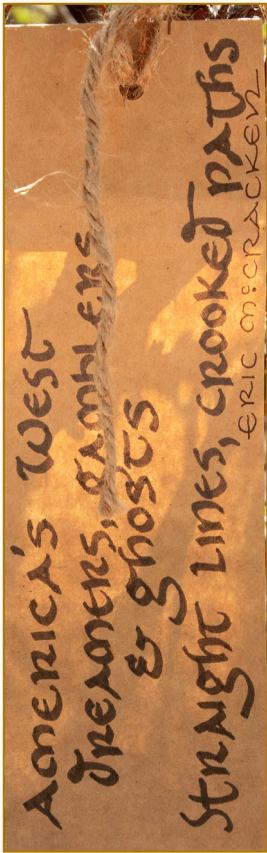 AMERICA'S WEST
DREAMERS, GAMBLERS
& GHOSTS
STRAIGHT LINES, CROOKED PATHS
ERIC McCRACKEN